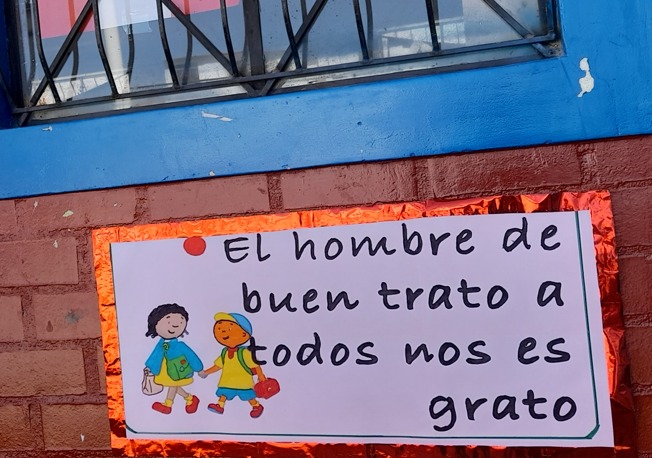 El hombre de
buen trato a
todos nos es
grato